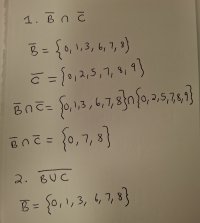 1. B̅ ∩ C̅
B̅ = {0,1,3,6,7,8}
C̅ = {0,2,5,7,8,9}
B̅ ∩ C̅ = {0,1,3,6,7,8} ∩ {0,2,5,7,8,9}
B̅ ∩ C̅ = {0,7,8}
2. B̅ ̅∪̅ ̅C̅
B̅ = {0,1,3,6,7,8}